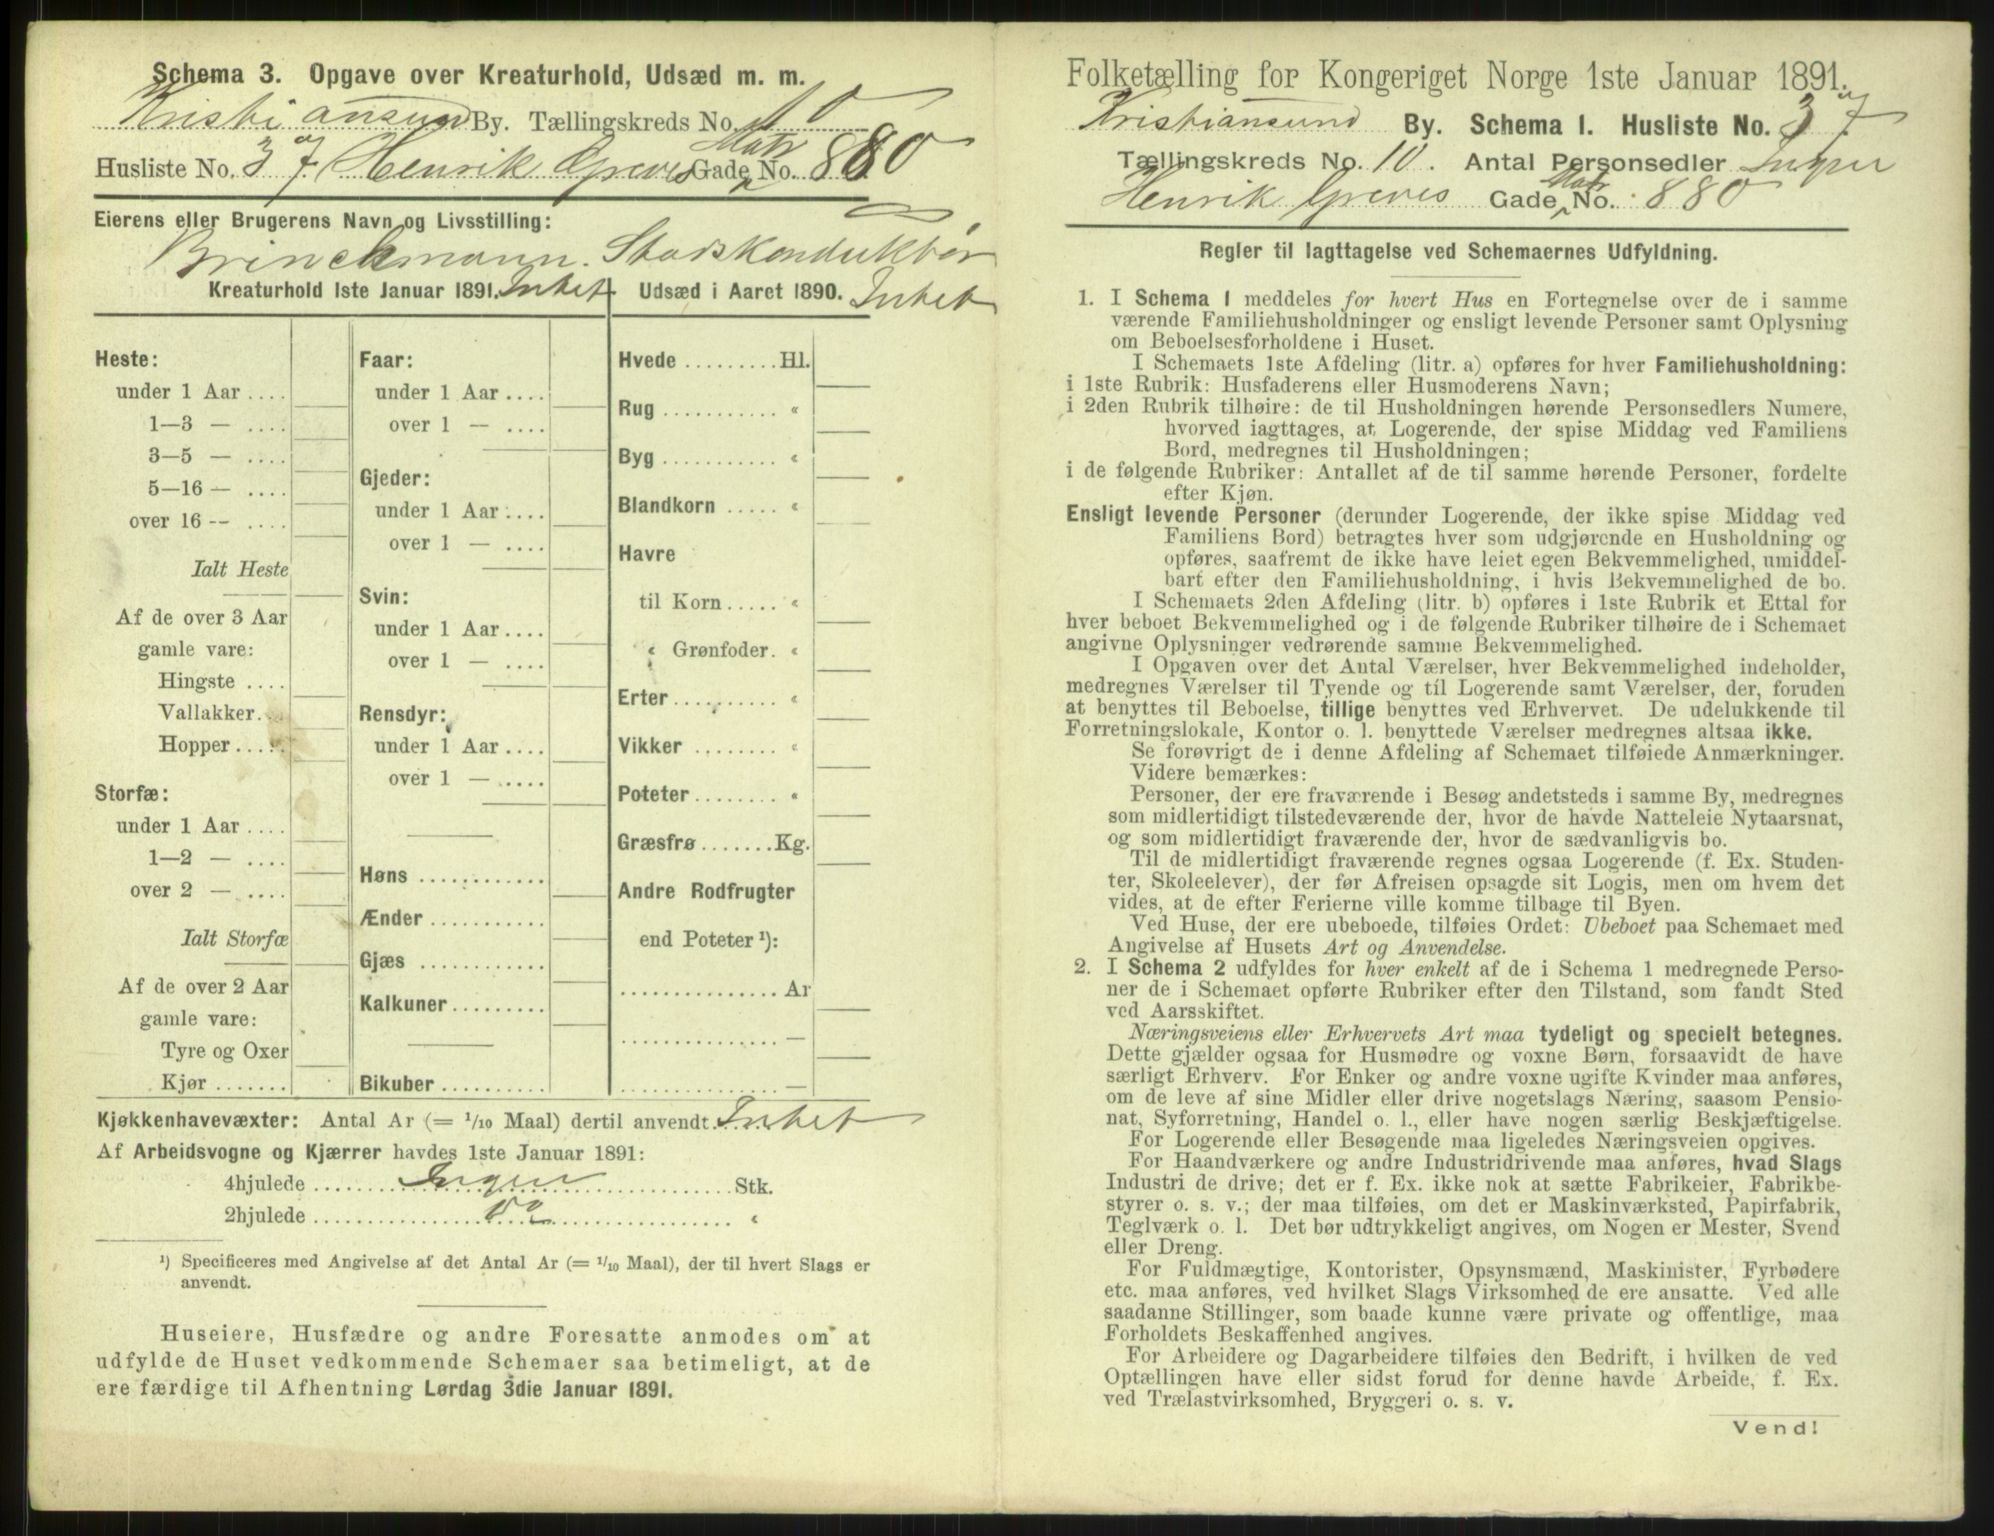 Schema 3. Opgave over Kreaturhold, Udsæd m. m.
Kristiansund By. Tællingskreds No. 10
Husliste No. 37 Henrik Greves Gade Matr No. 880
Eierens eller Brugerens Navn og Livsstilling:
Brinckmann. Stadskonduktør
Kreaturhold 1ste Januar 1891. Intet
Heste:
under 1 Aar ....
1—3 — ....
3—5 — ....
5—16 — ....
over 16 -- ....
Ialt Heste
Af de over 3 Aar
gamle vare:
Hingste ....
Vallakker....
Hopper .....
Storfæ:
under 1 Aar ....
1—2 — ....
over 2 — ....
Ialt Storfæ
Af de over 2 Aar
gamle vare:
Tyre og Oxer
Kjør .......
Faar:
under 1 Aar ....
over 1 — ....
Gjeder:
under 1 Aar ....
over 1 — ....
Svin:
under 1 Aar ....
over 1 — ....
Rensdyr:
under 1 Aar ....
over 1 — ....
Høns ............
Ænder ...........
Gjæs ............
Kalkuner.........
Bikuber ..........
Udsæd i Aaret 1890. Intet
Hvede .........Hl.
Rug ........... «
Byg ........... «
Blandkorn ..... «
Havre
til Korn..... «
« Grønfoder. «
Erter.......... «
Vikker ........ «
Poteter........ «
Græsfrø.......Kg.
Andre Rodfrugter
end Poteter ¹):
................Ar
................—
................—
Kjøkkenhavevæxter: Antal Ar (= 1/10 Maal) dertil anvendt. Intet
Af Arbeidsvogne og Kjærrer havdes 1ste Januar 1891:
4hjulede ........ Ingen ........ Stk.
2hjulede ........ do ........ «
¹) Specificeres med Angivelse af det Antal Ar (= 1/10 Maal), der til hvert Slags er
anvendt.
Huseiere, Husfædre og andre Foresatte anmodes om at
udfylde de Huset vedkommende Schemaer saa betimeligt, at de
ere færdige til Afhentning Lørdag 3die Januar 1891.
Folketælling for Kongeriget Norge 1ste Januar 1891.
Kristiansund By. Schema 1. Husliste No. 37
Tællingskreds No. 10. Antal Personsedler Ingen
Henrik Greves Gade Matr No. 880
Regler til Iagttagelse ved Schemaernes Udfyldning.
1. I Schema 1 meddeles for hvert Hus en Fortegnelse over de i samme
værende Familiehusholdninger og ensligt levende Personer samt Oplysning
om Beboelsesforholdene i Huset.
I Schemaets 1ste Afdeling (litr. a) opføres for hver Familiehusholdning:
i 1ste Rubrik: Husfaderens eller Husmoderens Navn;
i 2den Rubrik tilhøire: de til Husholdningen hørende Personsedlers Numere,
hvorved iagttages, at Logerende, der spise Middag ved Familiens
Bord, medregnes til Husholdningen;
i de følgende Rubriker: Antallet af de til samme hørende Personer, fordelte
efter Kjøn.
Ensligt levende Personer (derunder Logerende, der ikke spise Middag ved
Familiens Bord) betragtes hver som udgjørende en Husholdning og
opføres, saafremt de ikke have leiet egen Bekvemmelighed, umiddel-
bart efter den Familiehusholdning, i hvis Bekvemmelighed de bo.
I Schemaets 2den Afdeling (litr. b) opføres i 1ste Rubrik et Ettal for
hver beboet Bekvemmelighed og i de følgende Rubriker tilhøire de i Schemaet
angivne Oplysninger vedrørende samme Bekvemmelighed.
I Opgaven over det Antal Værelser, hver Bekvemmelighed indeholder,
medregnes Værelser til Tyende og til Logerende samt Værelser, der, foruden
at benyttes til Beboelse, tillige benyttes ved Erhvervet. De udelukkende til
Forretningslokale, Kontor o. l. benyttede Værelser medregnes altsaa ikke.
Se forøvrigt de i denne Afdeling af Schemaet tilføiede Anmærkninger.
Videre bemærkes:
Personer, der ere fraværende i Besøg andetsteds i samme By, medregnes
som midlertidigt tilstedeværende der, hvor de havde Natteleie Nytaarsnat,
og som midlertidigt fraværende der, hvor de sædvanligvis bo.
Til de midlertidigt fraværende regnes ogsaa Logerende (f. Ex. Studen-
ter, Skoleelever), der før Afreisen opsagde sit Logis, men om hvem det
vides, at de efter Ferierne ville komme tilbage til Byen.
Ved Huse, der ere ubeboede, tilføies Ordet: Ubeboet paa Schemaet med
Angivelse af Husets Art og Anvendelse.
2. I Schema 2 udfyldes for hver enkelt af de i Schema 1 medregnede Perso-
ner de i Schemaet opførte Rubriker efter den Tilstand, som fandt Sted
ved Aarsskiftet.
Næringsveiens eller Erhvervets Art maa tydeligt og specielt betegnes.
Dette gjælder ogsaa for Husmødre og voxne Børn, forsaavidt de have
særligt Erhverv. For Enker og andre voxne ugifte Kvinder maa anføres,
om de leve af sine Midler eller drive nogetslags Næring, saasom Pensio-
nat, Syforretning, Handel o. l., eller have nogen særlig Beskjæftigelse.
For Logerende eller Besøgende maa ligeledes Næringsveien opgives.
For Haandværkere og andre Industridrivende maa anføres, hvad Slags
Industri de drive; det er f. Ex. ikke nok at sætte Fabrikeier, Fabrikbe-
styrer o. s. v.; der maa tilføies, om det er Maskinværksted, Papirfabrik,
Teglværk o. l. Det bør udtrykkeligt angives, om Nogen er Mester, Svend
eller Dreng.
For Fuldmægtige, Kontorister, Opsynsmænd, Maskinister, Fyrbødere
etc. maa anføres, ved hvilket Slags Virksomhed de ere ansatte. Ved alle
saadanne Stillinger, som baade kunne være private og offentlige, maa
Forholdets Beskaffenhed angives.
For Arbeidere og Dagarbeidere tilføies den Bedrift, i hvilken de ved
Optællingen have eller sidst forud for denne havde Arbeide, f. Ex.
ved Trælastvirksomhed, Bryggeri o. s. v.
Vend!